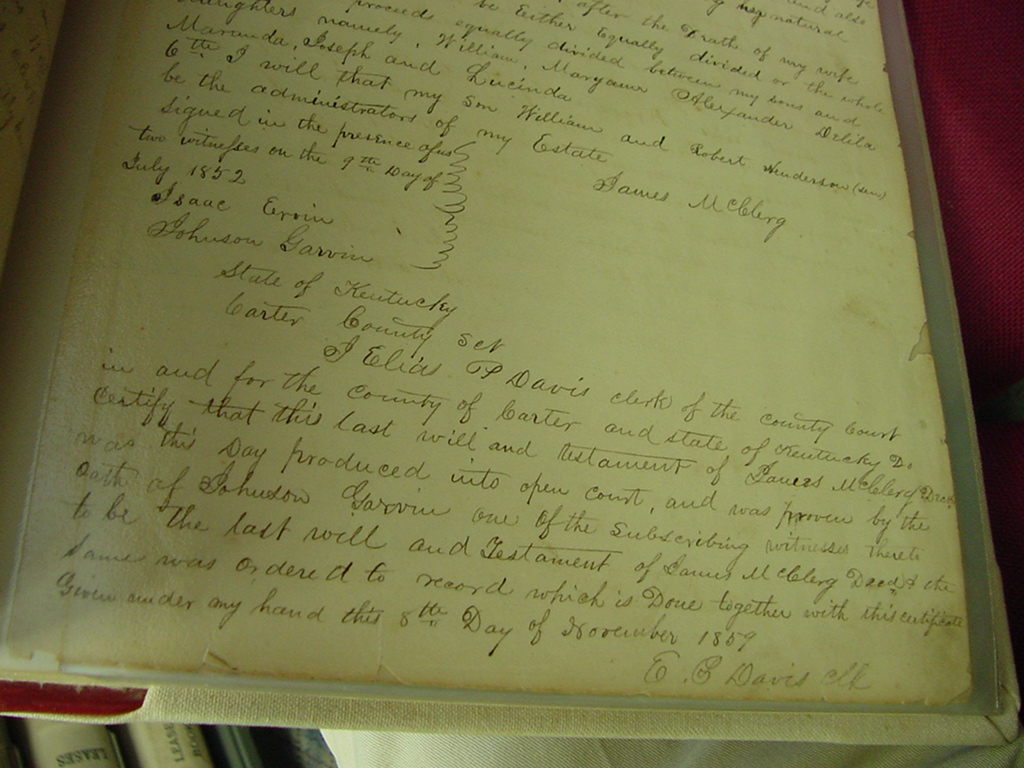 LEASES
LEASE
BOOK
proceeds be Either Equally divided or the whole
after the Death of my wife
Daughters namely, William, Maryann Alexander Delila
Maranda, Joseph and Lucinda
6th I will that my Son William and Robert Henderson
be the administrators of my Estate
Signed in the presence of us
two witnesses on the 9th Day of
July 1852 James McGlerg
Isaac Ervin
Johnson Garvin
State of Kentucky
Carter County Sct
I Elias P Davis clerk of the County Court
in and for the County of Carter and State of Kentucky Do
Certify that this last will and testament of James McGlerg Decd
was this Day produced into open Court, and was proven by the
oath of Johnson Garvin one of the Subscribing witnesses thereto
to be the last will and Testament of James McGlerg Decd & the
Same was ordered to record which is Done together with this certificate
Given under my hand this 8th Day of November 1859
E. P. Davis Clk